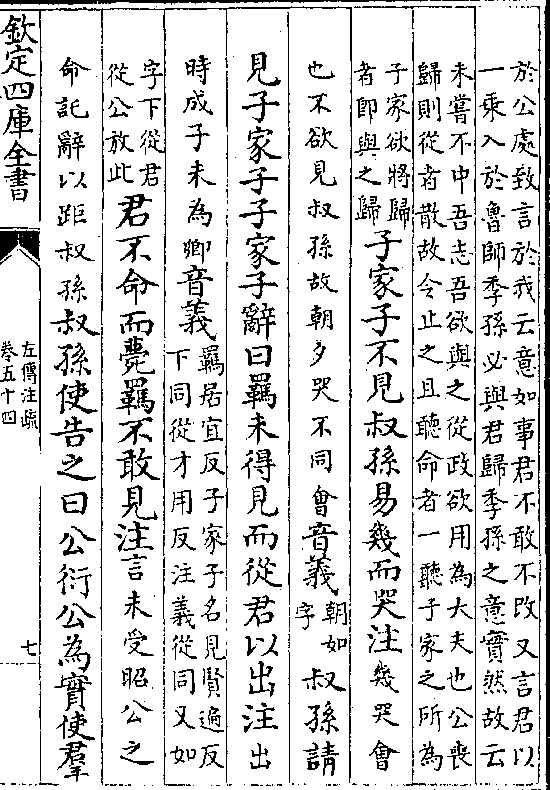 於公處致言於我云意如事君不敢不改又言君以
一乘入於魯師季孫必與君歸季孫之意實然故云
未嘗不中吾志吾欲與之從政欲用為大夫也公喪
歸則從者散故令止之且聽命者一聽子家之所為
子家欲將歸
者即與之歸
子家子不見叔孫易幾而哭注幾哭會
也不欲見叔孫故朝夕哭不同會音義
朝如
字
叔孫請
見子家子子家子辭曰羈未得見而從君以出注出
時成子未為卿音義
羈居宜反子家子名見賢遍反
下同從才用反注義從同又如
字下從君
從公放此
君不命而薨羈不敢見注言未受昭公之
命託辭以距叔孫叔孫使告之曰公衍公為實使羣
欽定四庫全書
左傳注疏
卷五十四
七